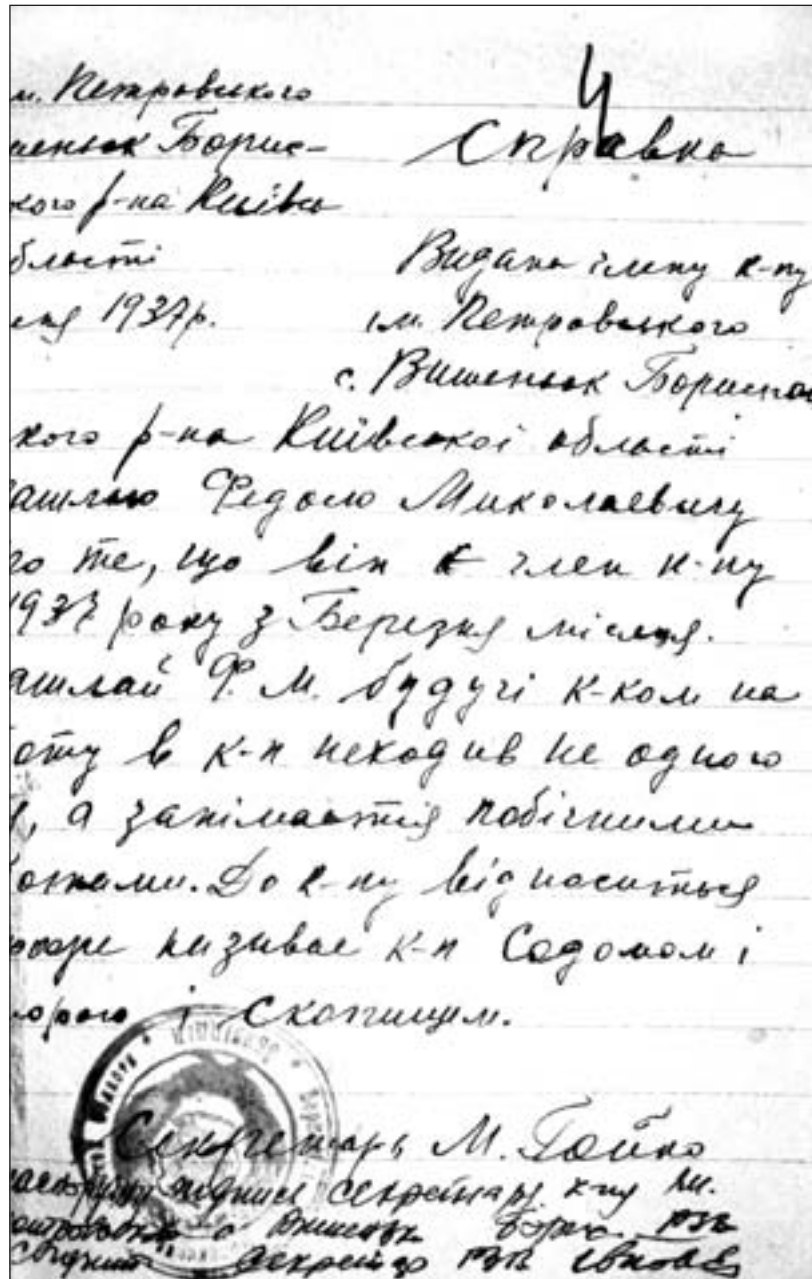 м. Петровського
шеньок Борис-
кого р-на Київсь
бласті
1937р.
Справка
Видана члену к-пу
ім. Петровського
с. Вишеньок Бориспо
кого р-на Київської області
ашлаю Федосю Миколаевичу
го те, що він є член к-пу
1937 року з Березня місяця.
ашлай Ф. М. будучі к-ком на
оту в к-п неходив не одного
а занімаєтся побічними
До к-пу відноситься
називає к-п Содомом і
морого і скопищем.
Секретарь М. Бойко
підпис секретаря к-пу ім.
Секретар